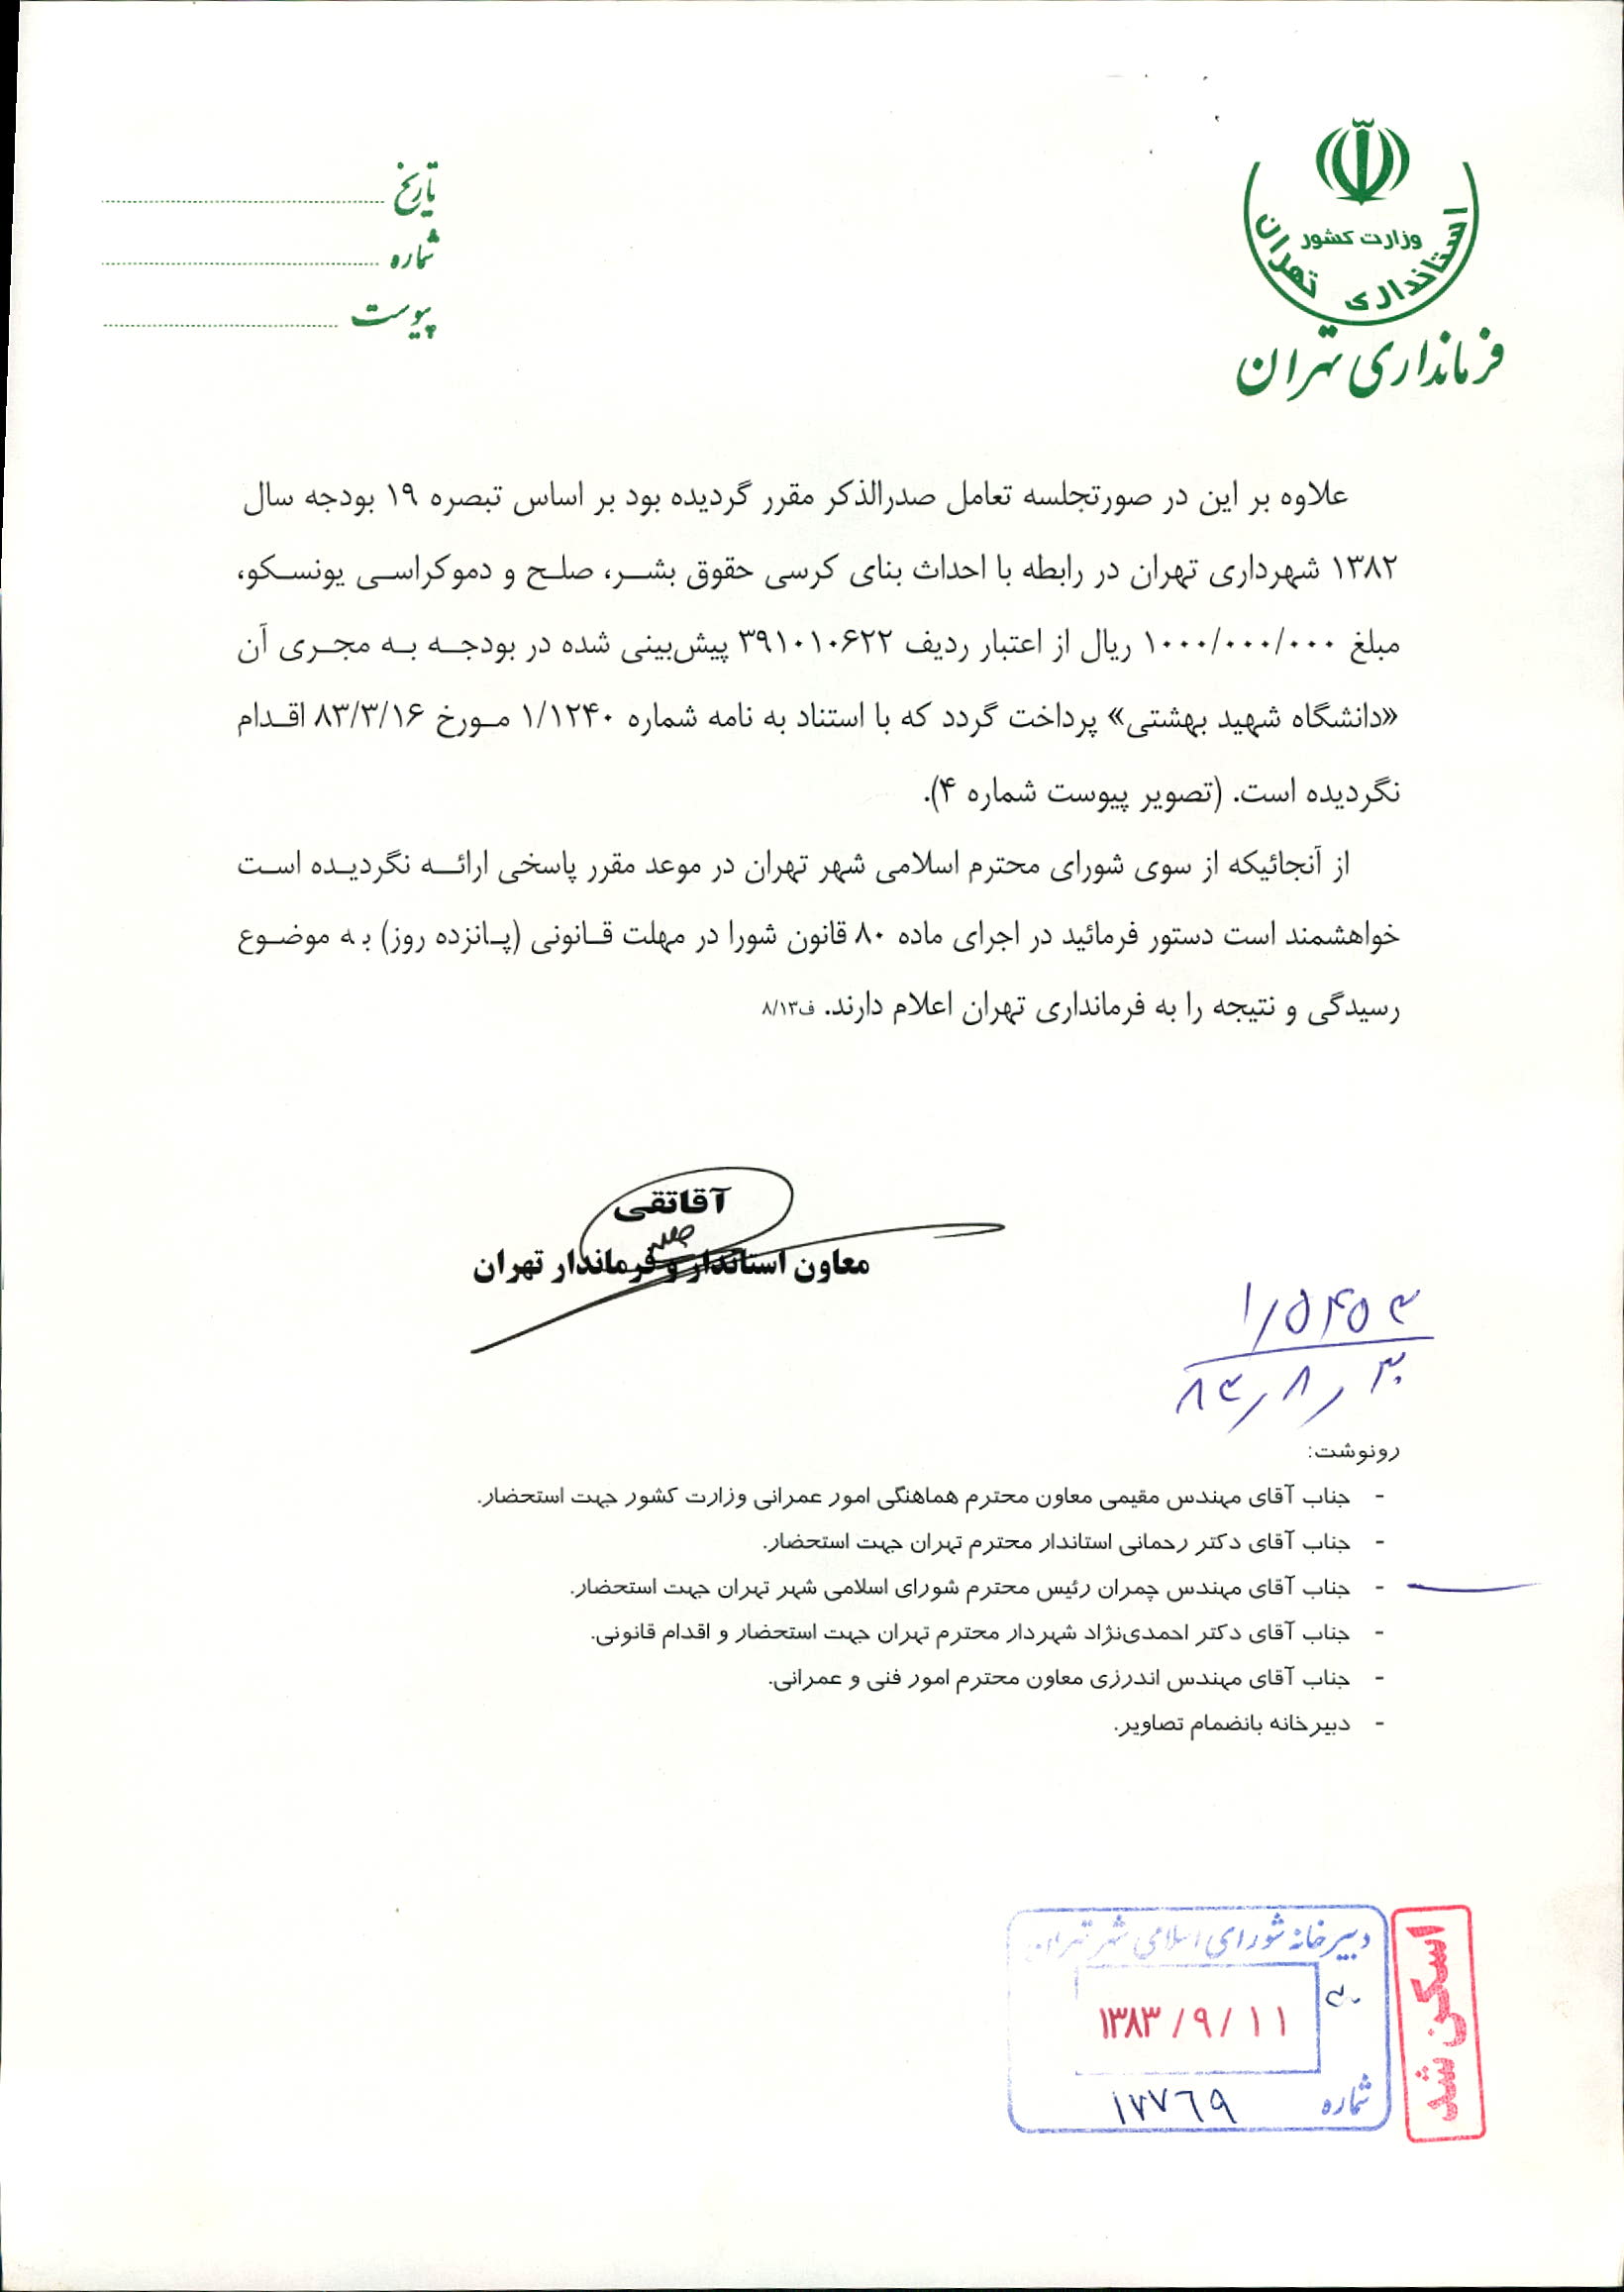 وزارت کشور
استانداری تهران
فرمانداری تهران
تاریخ
شماره
پیوست
علاوه بر این در صورتجلسه تعامل صدرالذکر مقرر گردیده بود بر اساس تبصره ۱۹ بودجه سال
۱۳۸۲ شهرداری تهران در رابطه با احداث بنای کرسی حقوق بشر، صلح و دموکراسی یونسکو،
مبلغ ۱۰۰۰/۰۰۰/۰۰۰ ریال از اعتبار ردیف ۳۹۱۰۱۰۶۲۲ پیش‌بینی شده در بودجه به مجری آن
«دانشگاه شهید بهشتی» پرداخت گردد که با استناد به نامه شماره ۱/۱۲۴۰ مورخ ۸۳/۳/۱۶ اقدام
نگردیده است. (تصویر پیوست شماره ۴).
از آنجائیکه از سوی شورای محترم اسلامی شهر تهران در موعد مقرر پاسخی ارائه نگردیده است
خواهشمند است دستور فرمائید در اجرای ماده ۸۰ قانون شورا در مهلت قانونی (پانزده روز) به موضوع
رسیدگی و نتیجه را به فرمانداری تهران اعلام دارند. ف۸/۱۳
آقاتقی
معاون استاندار و فرماندار تهران
۱/۵۴۵۳
۸۳/۸/۳۰
رونوشت:
- جناب آقای مهندس مقیمی معاون محترم هماهنگی امور عمرانی وزارت کشور جهت استحضار.
- جناب آقای دکتر رحمانی استاندار محترم تهران جهت استحضار.
- جناب آقای مهندس چمران رئیس محترم شورای اسلامی شهر تهران جهت استحضار.
- جناب آقای دکتر احمدی‌نژاد شهردار محترم تهران جهت استحضار و اقدام قانونی.
- جناب آقای مهندس اندرزی معاون محترم امور فنی و عمرانی.
- دبیرخانه بانضمام تصاویر.
دبیرخانه شورای اسلامی شهر تهران
۱۳۸۳/۹/۱۱
شماره ۱۷۷۶۹
اسکن شد